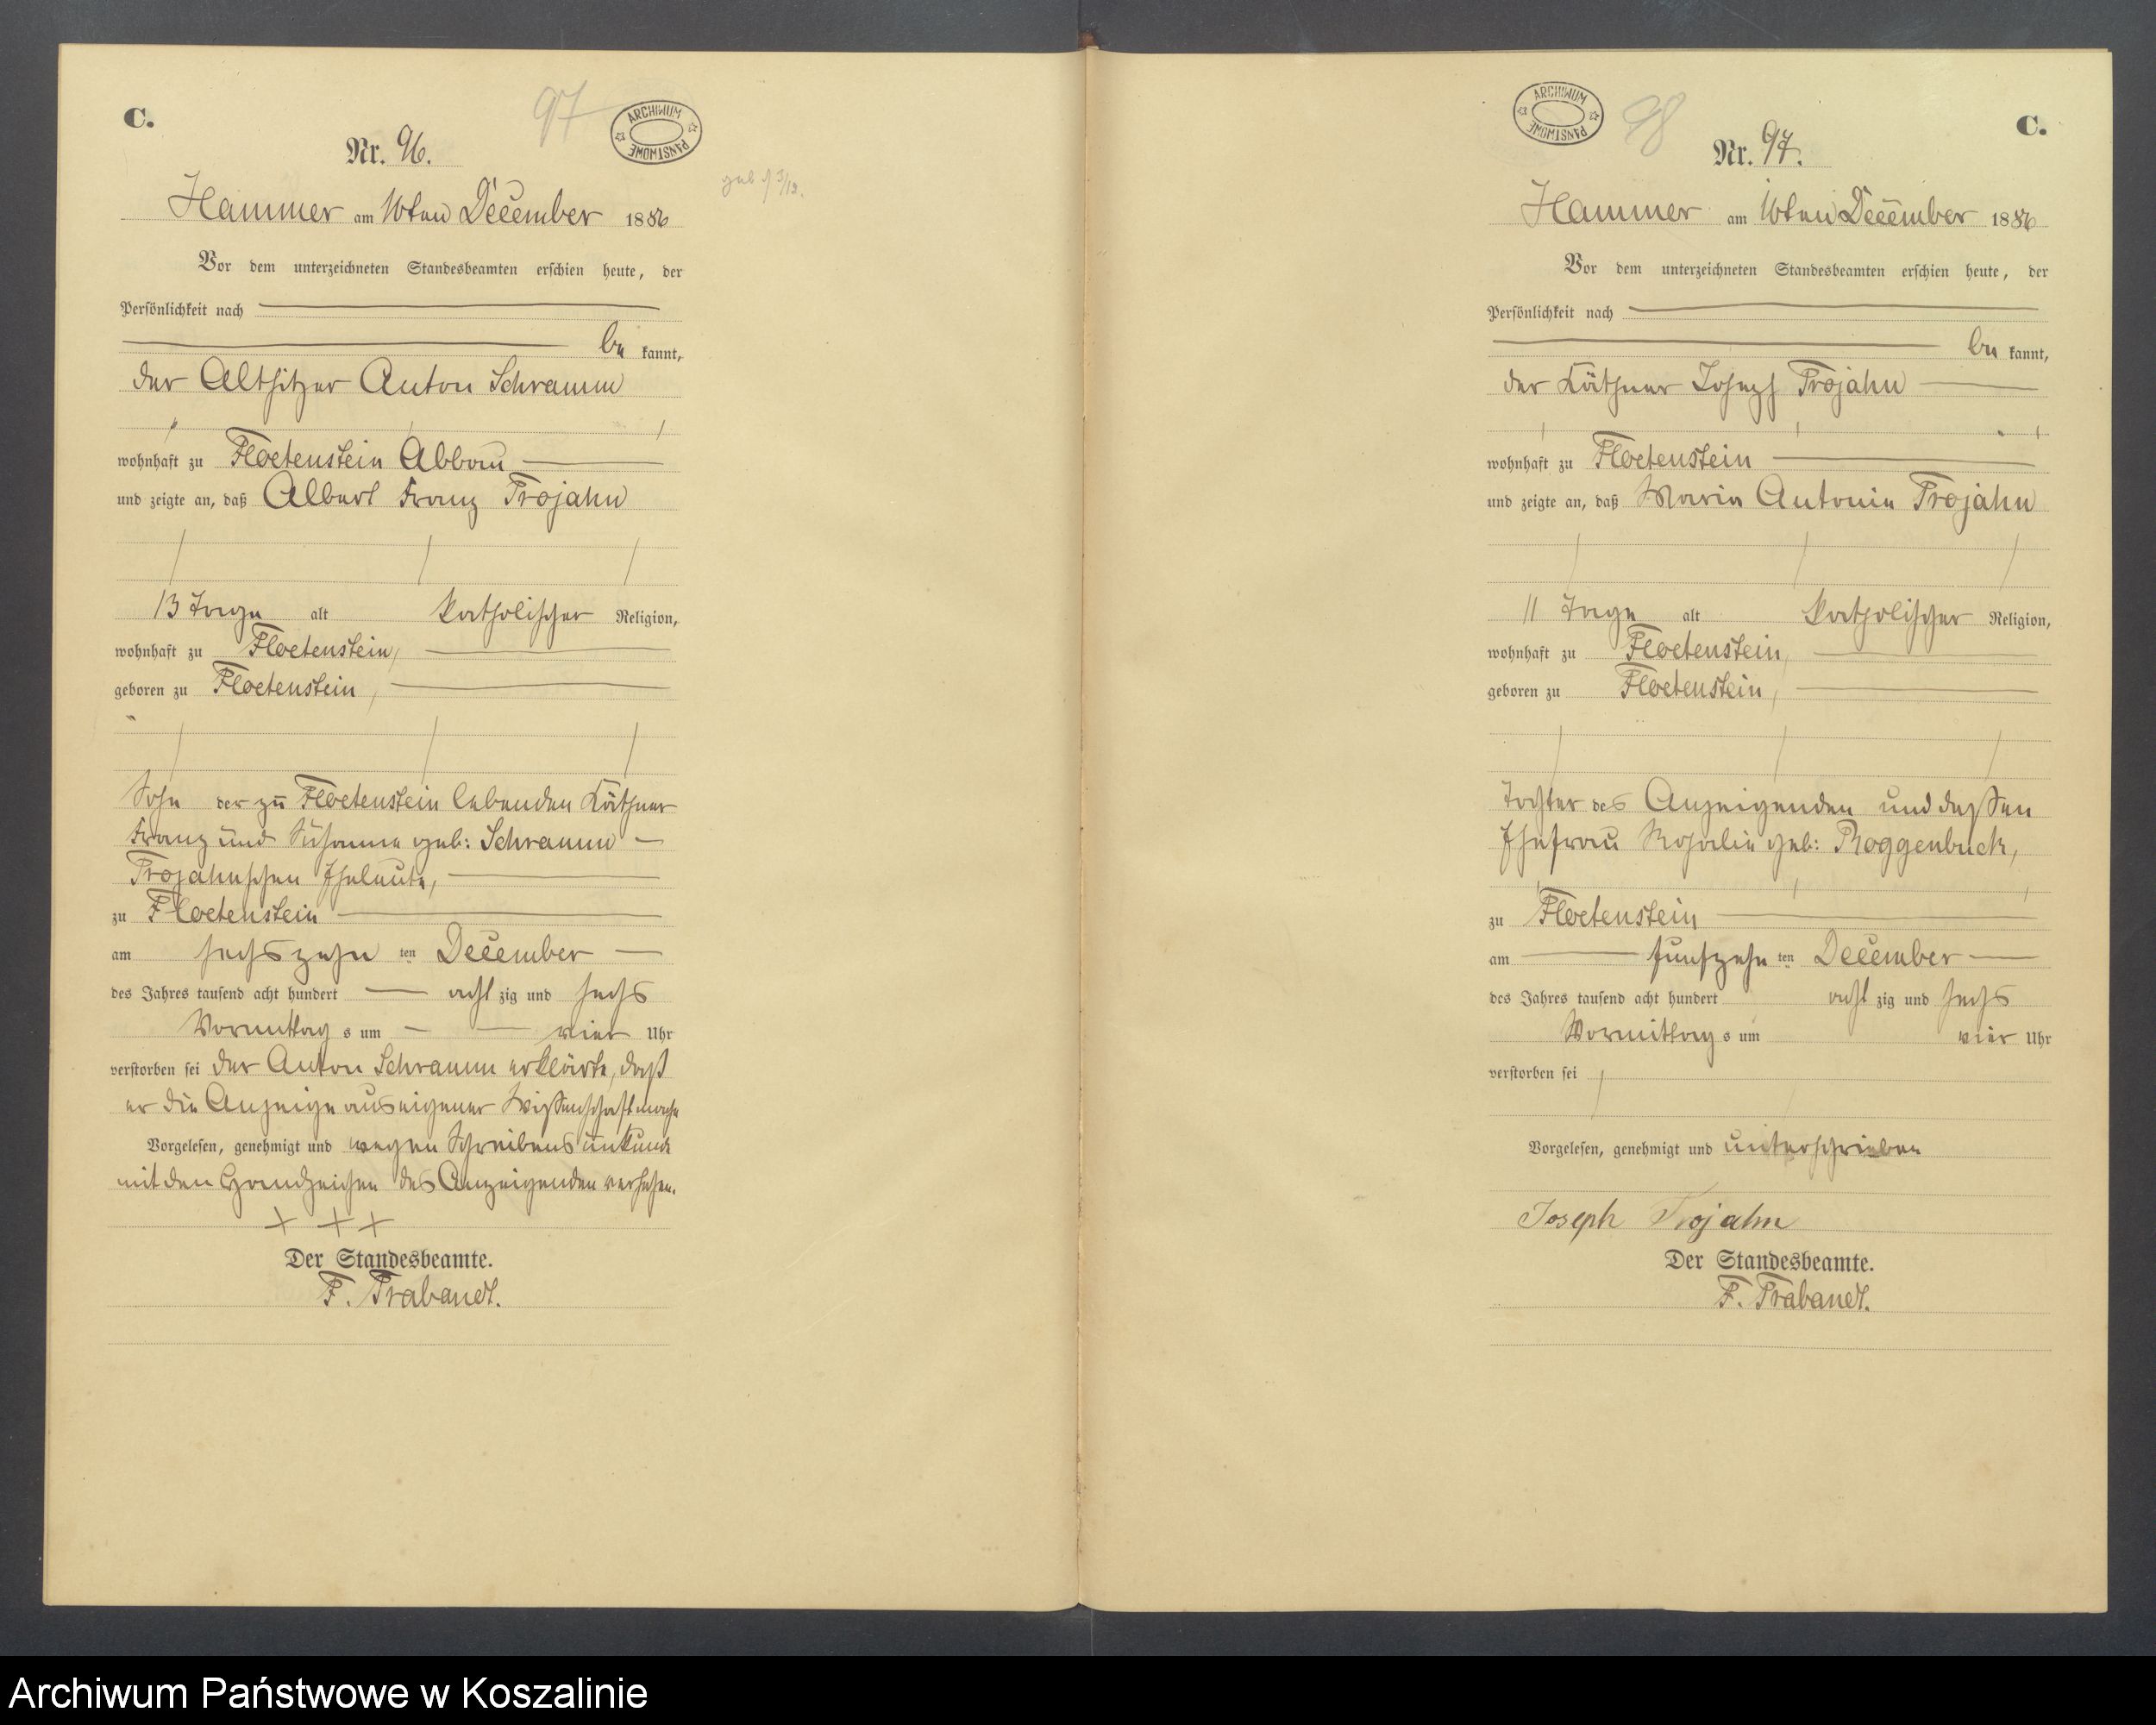 C.
97
ARCHIWUM PAŃSTWOWE
Nr. 96.
geb. 3/12.
Hammer am 16ten December 1886
Vor dem unterzeichneten Standesbeamten erschien heute, der
Persönlichkeit nach
be kannt,
der Altsitzer Anton Schramm
wohnhaft zu Floetenstein Abbau
und zeigte an, daß Albert Franz Trojahn
13 Tage alt katholischer Religion,
wohnhaft zu Floetenstein,
geboren zu Floetenstein,
Sohn der zu Floetenstein lebenden Käthner
Franz und Susanna geb: Schramm
Trojahnschen Eheleute,
zu Floetenstein
am sechszehn ten December
des Jahres tausend acht hundert acht zig und sechs
Vormittag s um vier Uhr
verstorben sei der Anton Schramm erklärte, daß
er die Anzeige aus eigener Wissenschaft mache
Vorgelesen, genehmigt und wegen Schreibensunkunde
mit den Handzeichen des Anzeigenden versehen.
+ + +
Der Standesbeamte.
F. Trabandt.
ARCHIWUM PAŃSTWOWE
98
C.
Nr. 97.
Hammer am 16ten December 1886
Vor dem unterzeichneten Standesbeamten erschien heute, der
Persönlichkeit nach
be kannt,
der Käthner Joseph Trojahn
wohnhaft zu Floetenstein
und zeigte an, daß Maria Antonie Trojahn
11 Tage alt katholischer Religion,
wohnhaft zu Floetenstein,
geboren zu Floetenstein,
Tochter des Anzeigenden und dessen
Ehefrau Rosalie geb: Roggenbuck,
zu Floetenstein
am fünfzehn ten December
des Jahres tausend acht hundert acht zig und sechs
Vormittag s um vier Uhr
verstorben sei
Vorgelesen, genehmigt und unterschrieben
Joseph Trojahn
Der Standesbeamte.
F. Trabandt.
Archiwum Państwowe w Koszalinie